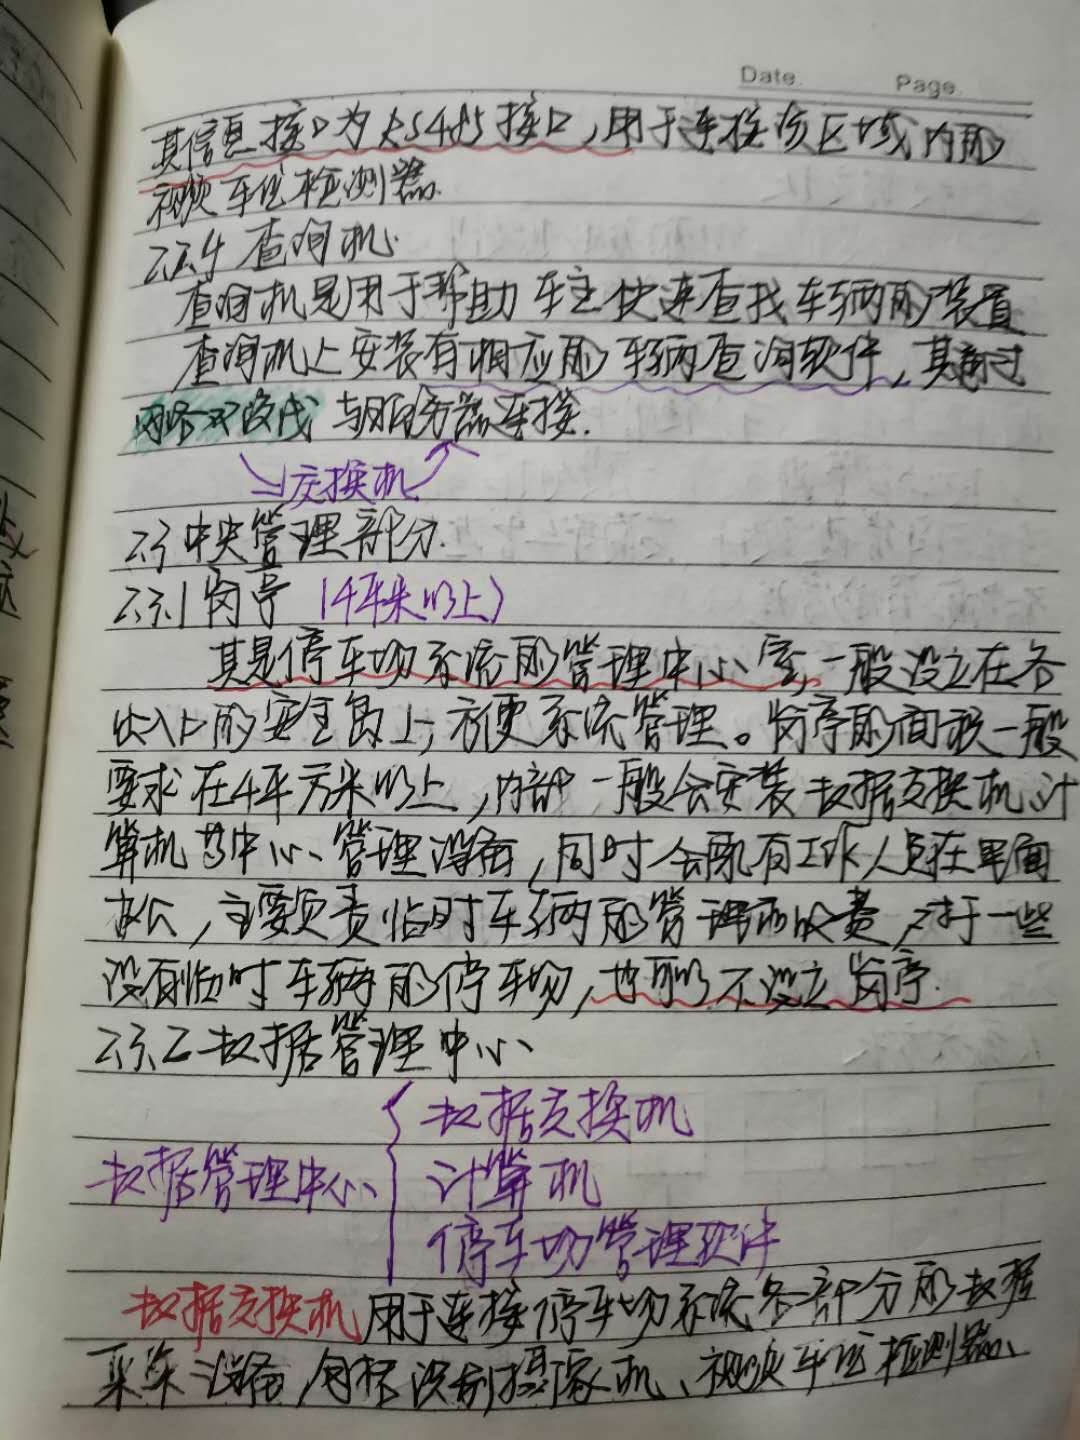 Date.
Page.
其信息接口为RS485接口,用于连接该区域内的
视频车位检测器.
2.2.4 查询机.
查询机是用于帮助车主快速查找车辆的装置
查询机上安装有相应的车辆查询软件,其通过
网络双绞线与服务器连接.
交换机
2.3 中央管理部分.
2.3.1 岗亭 (4平米以上)
其是停车场系统的管理中心室,一般设立在各
出入口的安全岛上,方便系统管理。岗亭的面积一般
要求在4平方米以上,内部一般会安装数据交换机、计
算机等中心管理设备,同时会配有工作人员在里面
办公,主要负责临时车辆的管理和收费,对于一些
没有临时车辆的停车场,也可以不设立岗亭.
2.3.2 数据管理中心
数据交换机
数据管理中心 计算机
停车场管理软件
数据交换机用于连接停车场系统各部分的数据
采集设备,包括识别摄像机、视频车位检测器、